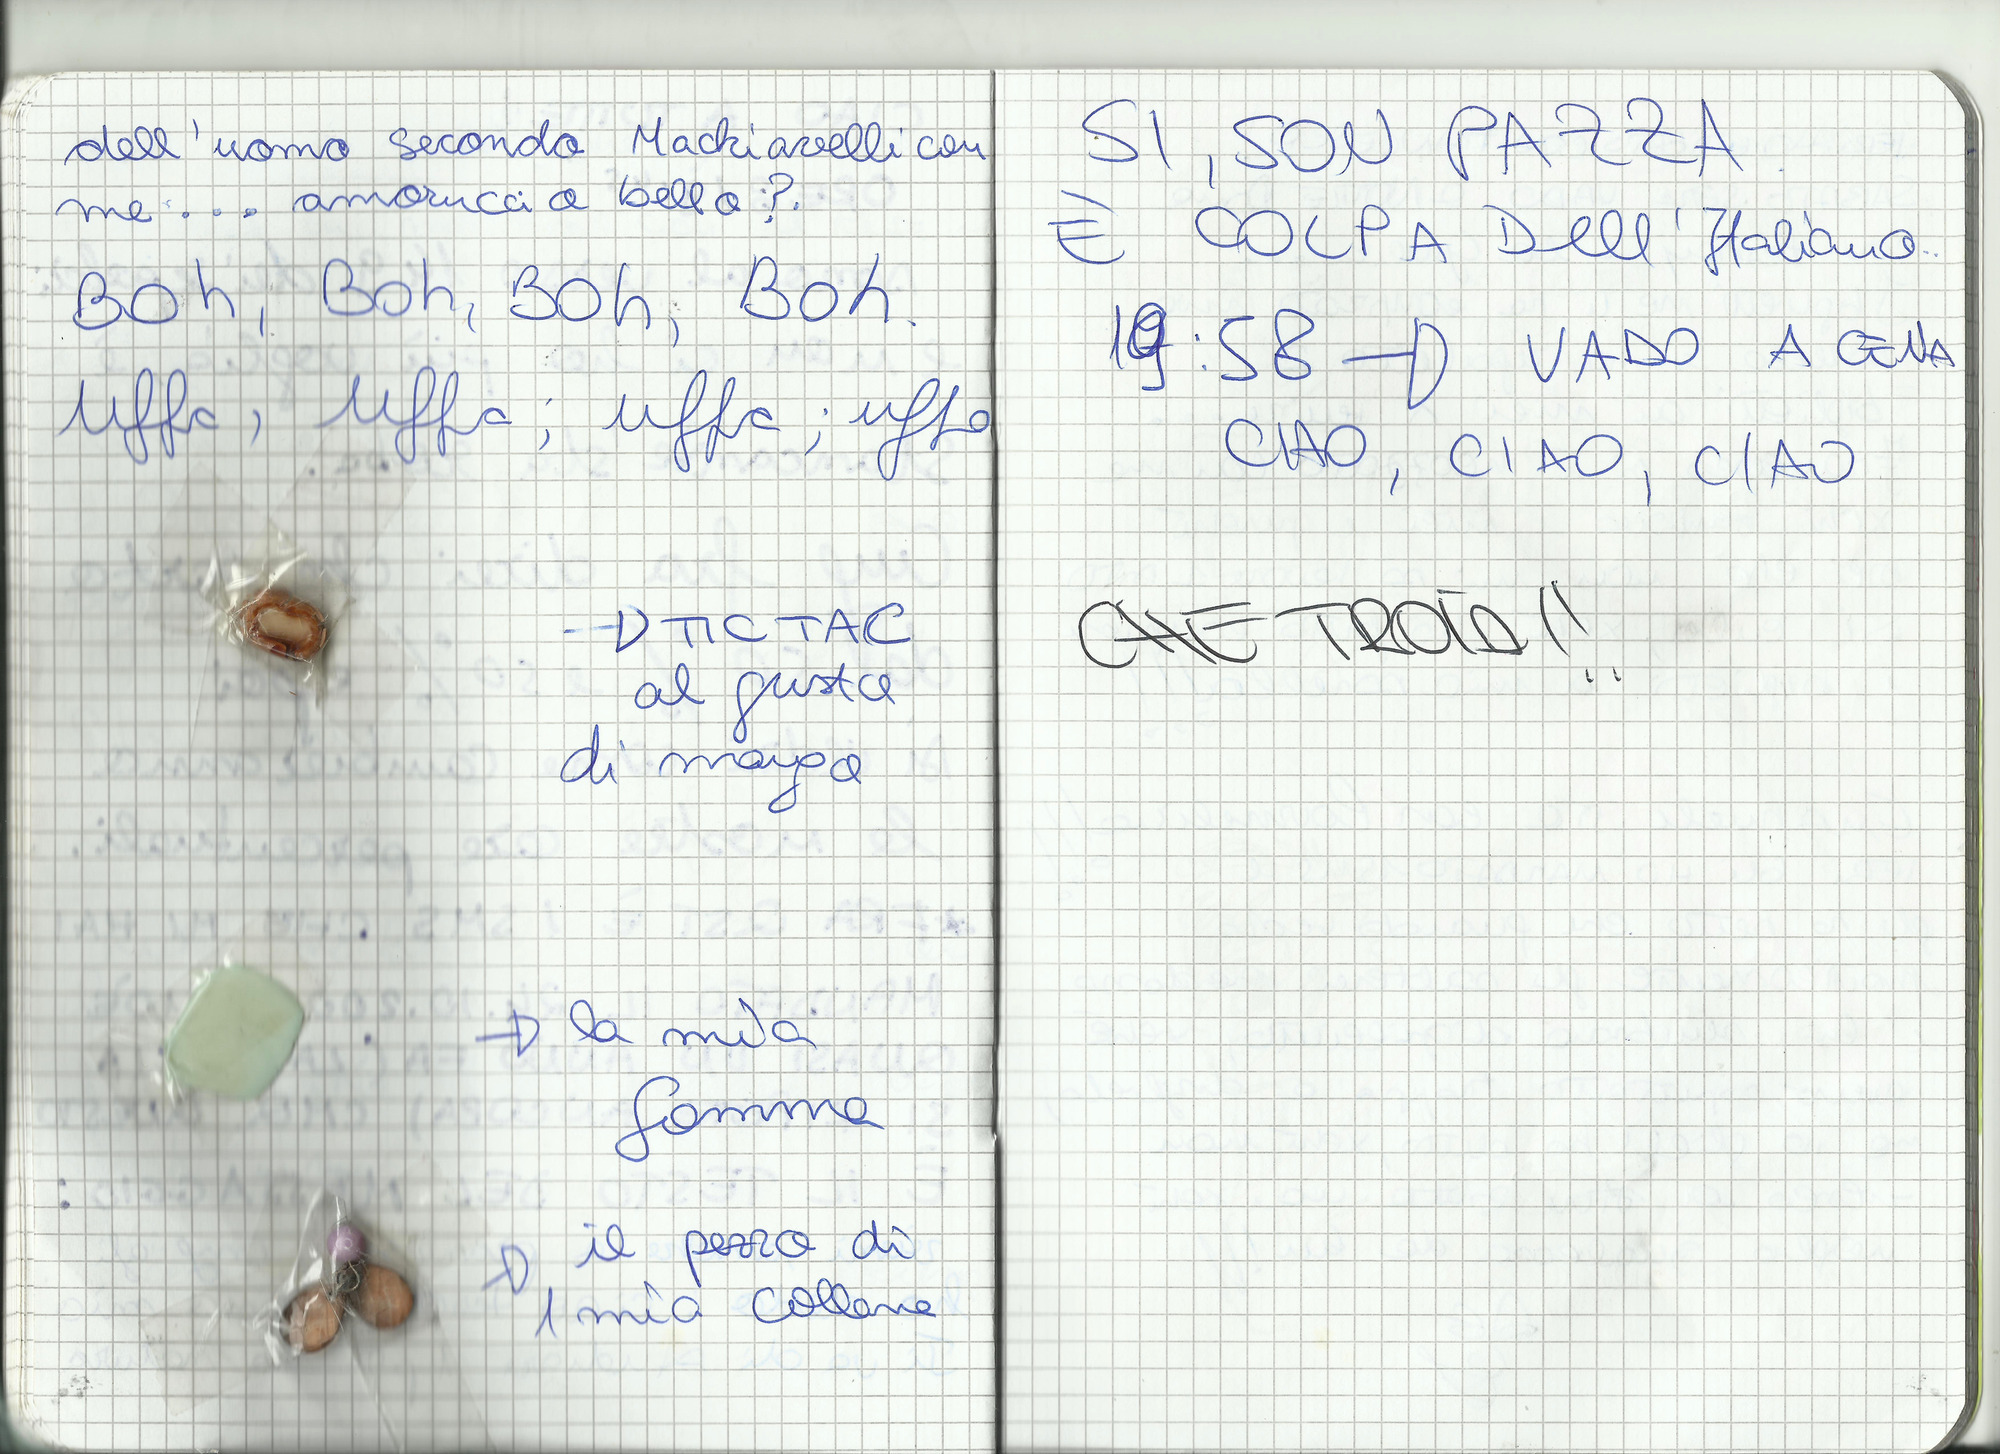 dell'uomo secondo Machiavelli con
me.... amoruccio bello?.
BOh, BOh, BOh, BOh.
uffa; uffa; uffa; uffa
→ TIC TAC
al gusto
di mango
→ la mia
gomma
→ il pezzo di
1 mia collana
SI, SON PAZZA.
È COLPA Dell'Italiano..
19:58 → VADO A CENA
CIAO, CIAO, CIAO
CHE TROIA!!